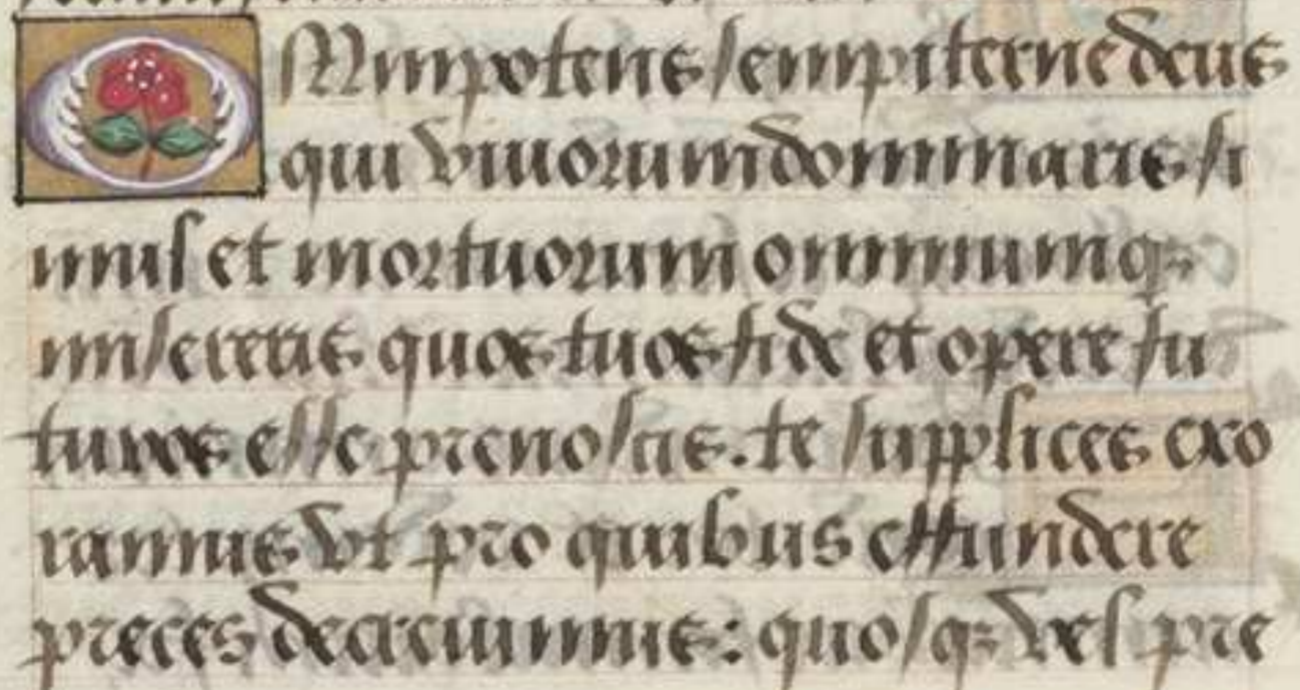 OMnipotens sempiterne deus
qui viuorum dominaris si
mul et mortuorum omniumq₃
misereris quos tuos fide et opere fu
turos esse prenoscis. te supplices exo
ramus vt pro quibus effundere
preces decreuimus: quosq₃ vel pre